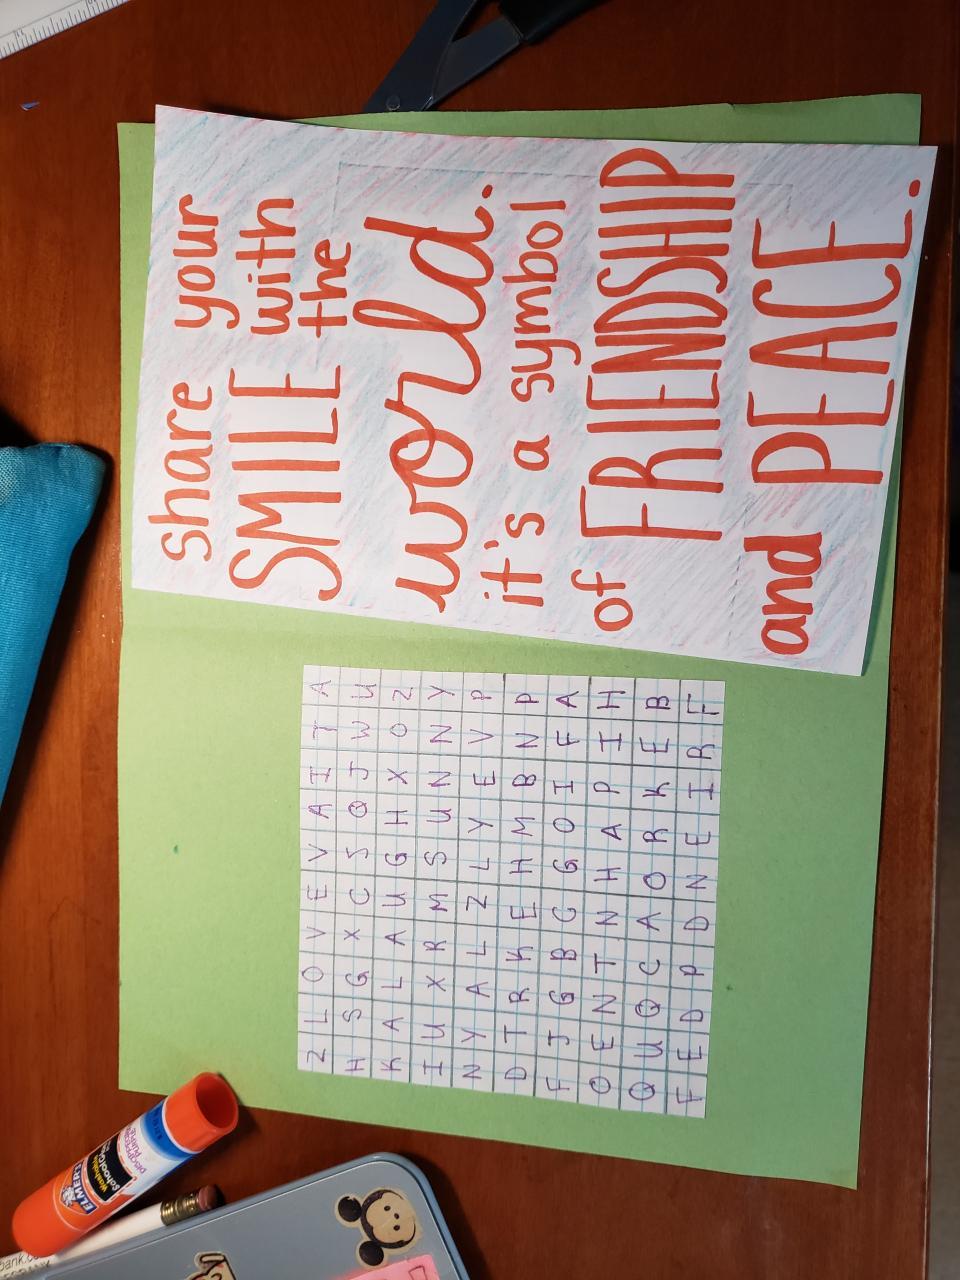 Share your
SMILE with
the
world.
it's a symbol
of FRIENDSHIP
and PEACE.
Z L O V E V A I T A
H S G X C S Q J W U
K A L A U G H X O Z
I U X R M S U N N Y
N Y A L Z L Y E V P
D T R K E H M B N P
F J G B C G O I F A
O E N T N H A P I H
Q U Q C A O R K E B
F E D P D N E I R F
ELMER'S
Washable
PURPLE